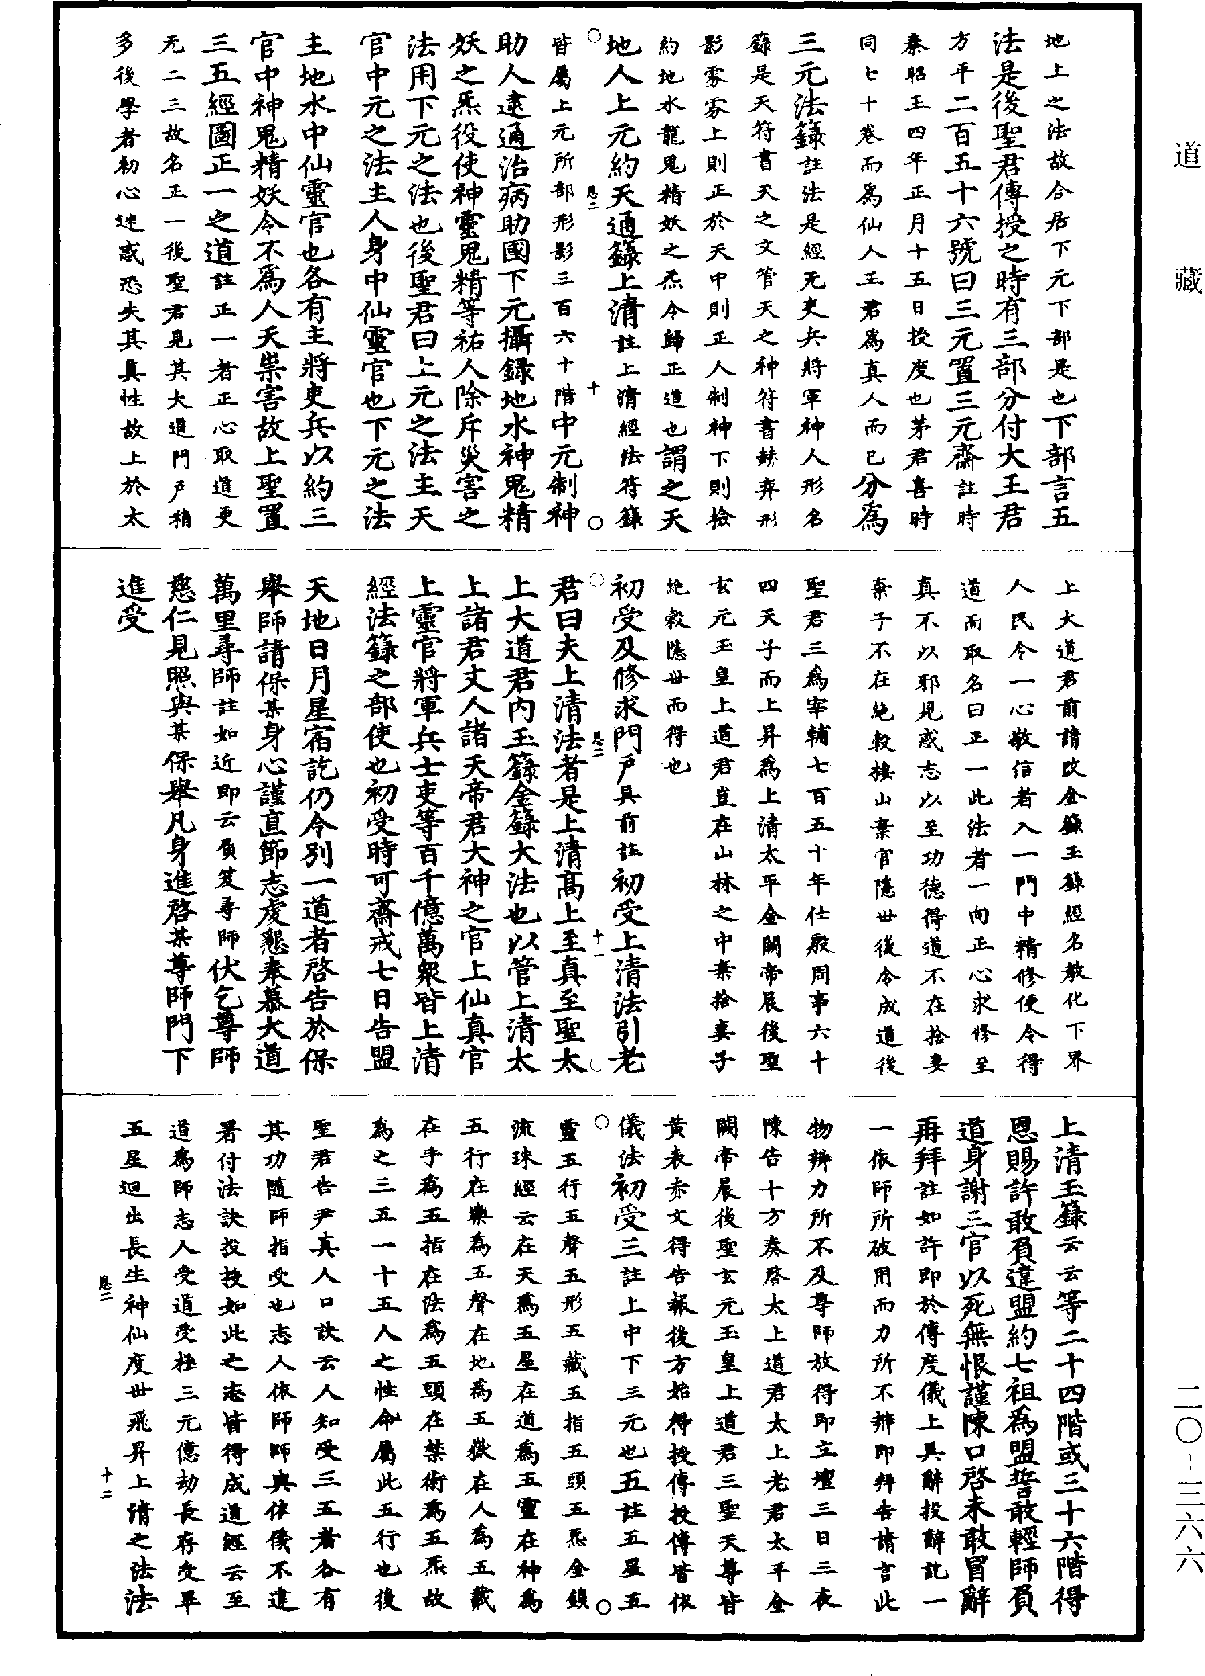 道藏
地上之法故合居下元下部是也下部言五
法是後聖君傳授之時有三部分付大王君
方平二百五十六號曰三元置三元齋註時
秦昭王四年正月十五日授度也茅君喜時
同七十卷而為仙人王君為真人而已分為
三元法籙註法是經无吏兵將軍神人形名
籙是天符書天之文管天之神符書缺弃形
影霧雰上則正於天中則正人制神下則檢
約地水龍鬼精妖之炁令歸正道也謂之天
地人上元約天通籙上清註上清經法符籙
皆屬上元所部形影三百六十階中元制神
助人遠通治病助國下元攝錄地水神鬼精
妖之炁役使神靈鬼精等祐人除斥災害之
法用下元之法也後聖君曰上元之法主天
官中元之法主人身中仙靈官也下元之法
主地水中仙靈官也各有主將吏兵以約三
官中神鬼精妖令不為人天祟害故上聖置
三五經圖正一之道註正一者正心取道更
无二三故名正一後聖君見其大道門戶稍
多後學者初心迷惑恐失其真性故上於太
上大道君前請改金籙玉籙經名教化下界
人民令一心敬信者入一門中精修便令得
道而取名曰正一此法者一向正心求修至
真不以邪見惑志以至功德得道不在捨妻
棄子不在絕穀棲山棄官隱世後令成道後
聖君三為宰輔七百五十年仕殷周事六十
四天子而上昇為上清太平金闕帝晨後聖
玄元玉皇上道君豈在山林之中棄捨妻子
絕穀隱世而得也
初受及修求門戶具前註初受上清法引老
君曰夫上清法者是上清高上至真至聖太
上大道君內玉籙金籙大法也以管上清太
上諸君丈人諸天帝君大神之官上仙真官
上靈官將軍兵士吏等百千億萬眾皆上清
經法籙之部使也初受時可齋戒七日告盟
天地日月星宿訖仍令別一道者啓告於保
舉師請保某身心謹直節志虔懇奉慕大道
萬里尋師註如近即云負笈尋師伏乞尊師
慈仁見照與某保舉凡身進啓某尊師門下
進受
上清玉籙云云等二十四階或三十六階得
恩賜許敢負違盟約七祖為盟誓敢輕師負
道身謝三官以死無恨謹陳口啓未敢冒辭
再拜註如許即於傳度儀上具辭投辭訖一
一依師所破用而力所不辨即拜告請言此
物辨力所不及尊師放得即立壇三日三夜
陳告十方奏啓太上道君太上老君太平金
闕帝晨後聖玄元玉皇上道君三聖天尊皆
黃表赤文得告報後方始得授傳授傳皆依
儀法初受三註上中下三元也五註五星五
靈五行五聲五形五藏五指五頭五炁金鎖
流珠經云在天為五星在道為五靈在神為
五行在樂為五聲在地為五嶽在人為五藏
在手為五指在法為五頭在禁術為五炁故
為之三五一十五人之性命屬此五行也後
聖君告尹真人口訣云人知受三五者各有
其功隨師指受也志人依師師與依儀不違
署付法訣投授如此之志皆得成道經云至
道為師志人受道受極三元億劫長存受畢
五星迴出長生神仙度世飛昇上清之法法
二〇-三六六